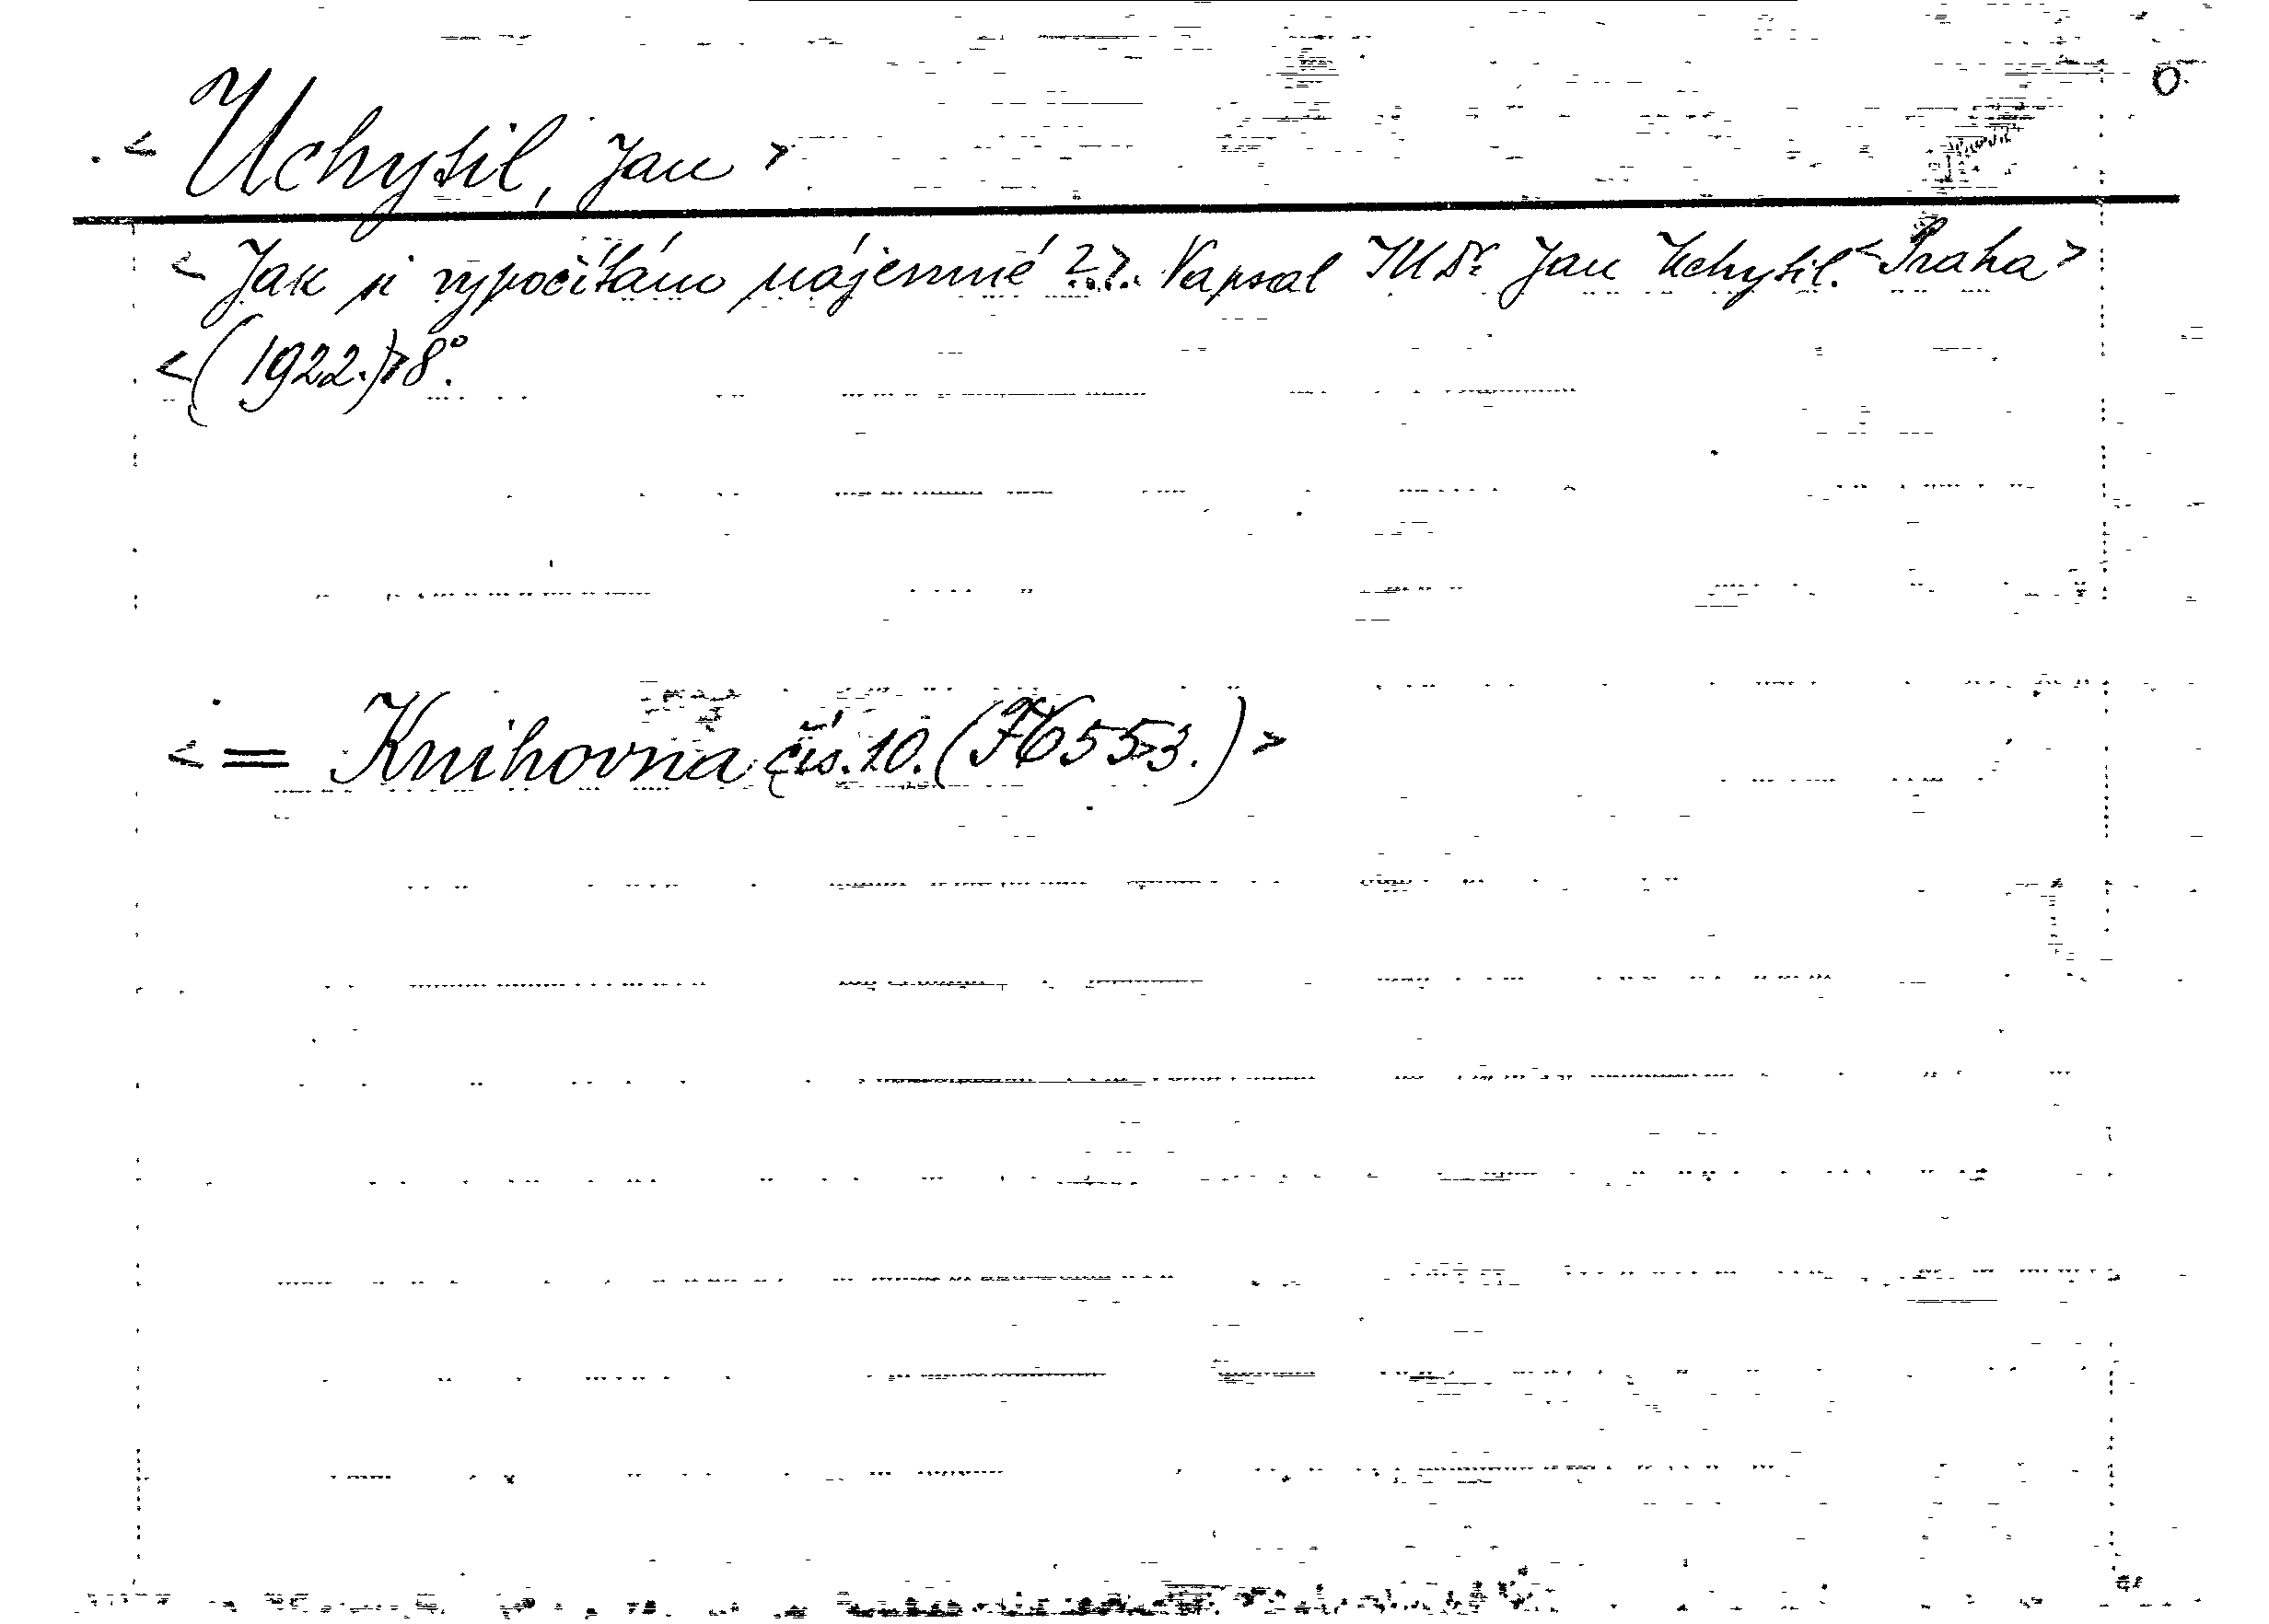 < Uchytil, Jan >
< Jak si vypočítám nájemné ? >. Napsal JUDr. Jan Uchytil. < Praha >
< (1922.) > 8°.
< = Knihovna čís. 10. (F 6553.) >